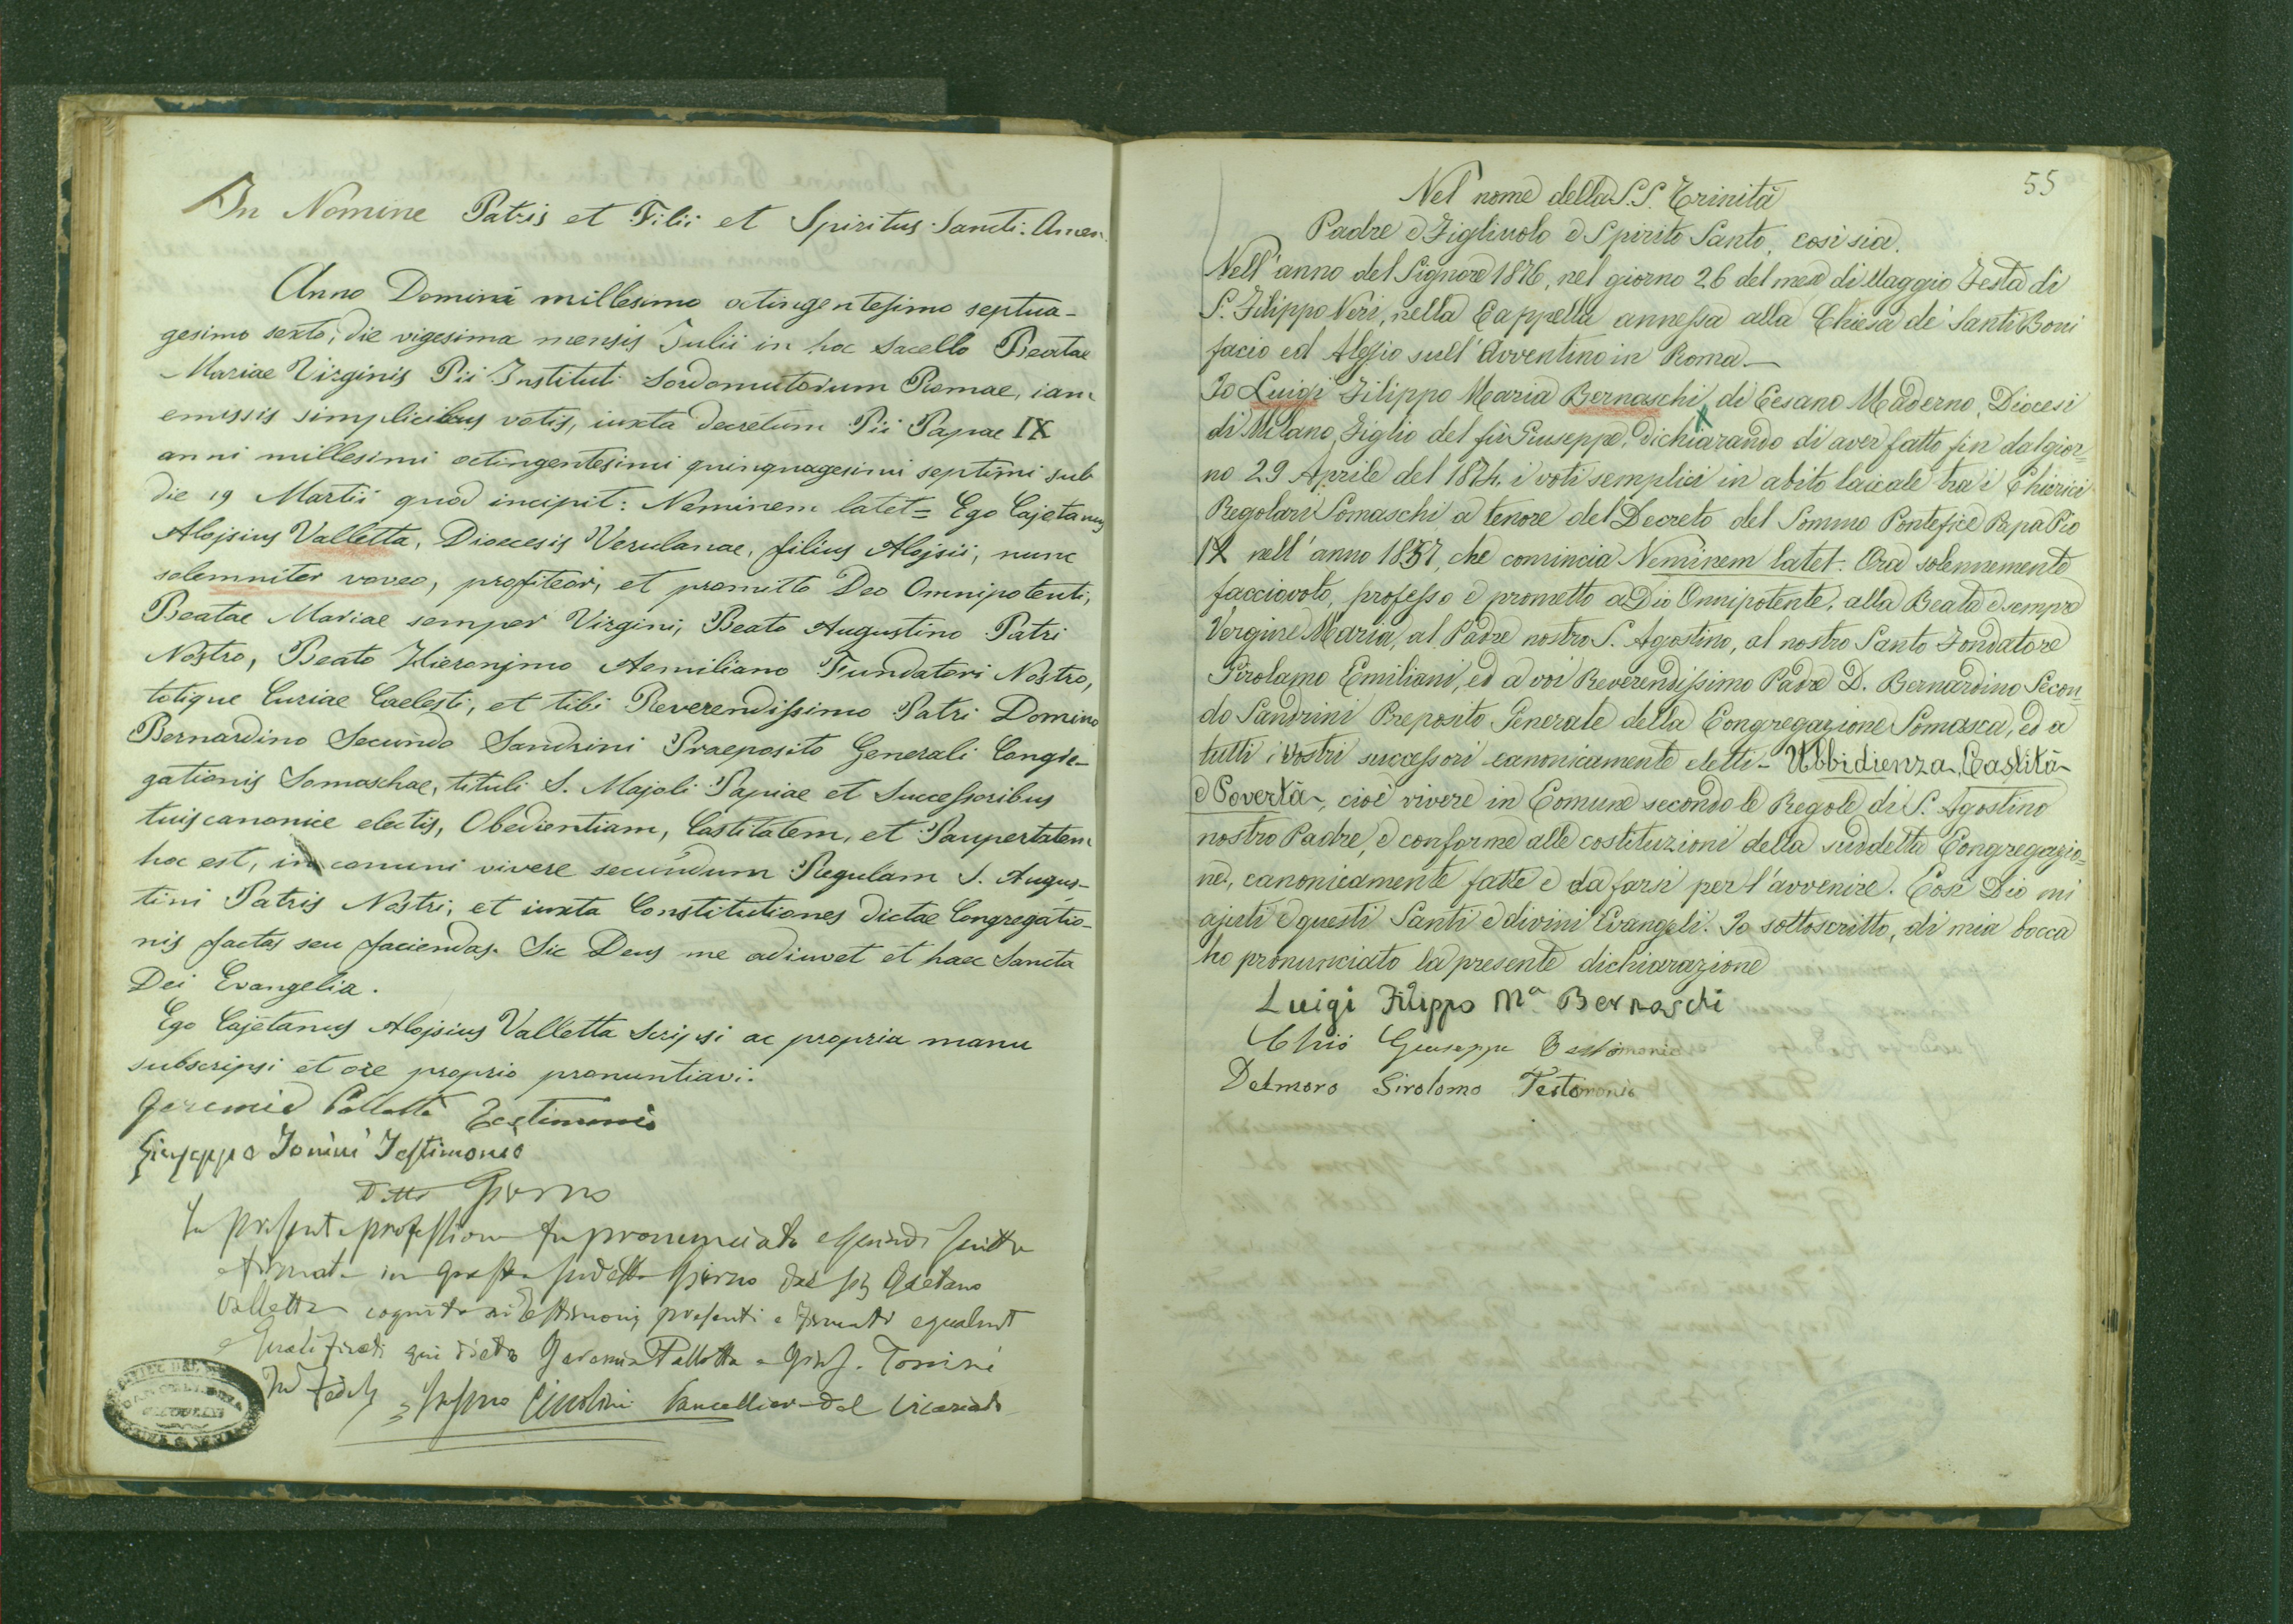 In Nomine Patris et Filii et Spiritus Sancti. Amen.
Anno Domini millesimo octingentesimo septua-
gesimo sexto, die vigesima mensis Julii in hoc Sacello Beatae
Mariae Virginis Pii Instituti Sordomutorum Romae, iam
emissis simplicibus votis, iuxta decretum Pii Papae IX
anni millesimi octingentesimi quinquagesimi septimi sub
die 19 Martii quod incipit: Neminem latet = Ego Cajetanus
Alojsius Valletta, Dioecesis Verulanae, filius Alojsii, nunc
solemniter voveo, profiteor, et promitto Deo Omnipotenti,
Beatae Mariae semper Virgini, Beato Augustino Patri
Nostro, Beato Hieronjmo Aemiliano Fundatori Nostro,
totique Curiae Caelesti, et tibi Reverendissimo Patri Domino
Bernardino Secundo Sandrini Praeposito Generali Congre-
gationis Somaschae, tituli S. Majoli Papiae et Successoribus
tuis canonice electis, Obedientiam, Castitatem, et Paupertatem
hoc est, in comuni vivere secundum Regulam S. Augus-
tini Patris Nostri, et iuxta Constitutiones dictae Congregatio-
nis factas seu faciendas. Sic Deus me adiuvet et haec Sancta
Dei Evangelia.
Ego Cajetanus Alojsius Valletta Scripsi ac propria manu
subscripsi et ore proprio pronuntiavi.
Geremia Pallotta Testimonio
Giuseppe Tonini Testimonio
Detto Giorno
La presente professione fu pronunciata e quindi scritta
e firmata in questo suddetto Giorno dal Sig Gaetano
Valletta cognito ai Testimonj presenti e firmati egualmt
e qualificati qui dietro Geremia Pallotta e Gius. Tonini
In fede Cancelliere del Vicariato
55
Nel nome della S.S. Trinità
Padre e Figliuolo e Spirito Santo, così sia.
Nell'anno del Signore 1876, nel giorno 26 del mese di Maggio Festa di
S. Filippo Neri, nella Cappella annessa alla Chiesa de' Santi Boni
facio ed Alessio sull'Aventino in Roma.—
Io Luigi Filippo Maria Bernaschi, di Cesano Maderno, Diocesi
di Milano, Figlio del fù Giuseppe, dichiarando di aver fatto fin dal gior=
no 29 Aprile del 1874. i voti semplici in abito laicale tra i Chierici
Regolari Somaschi a tenore del Decreto del Sommo Pontefice Papa Pio
IX nell'anno 1857, che comincia Neminem latet. Ora solennemente
faccio voto, professo e prometto a Dio Onnipotente, alla Beata e sempre
Vergine Maria, al Padre nostro S. Agostino, al nostro Santo Fondatore
Girolamo Emiliani, ed a voi Reverendissimo Padre D. Bernardino Secon=
do Sandrini Preposito Generale della Congregazione Somasca, ed a
tutti i vostri successori canonicamente eletti - Ubbidienza, Castità
e Povertà, cioè vivere in Comune secondo le Regole di S. Agostino
nostro Padre, e conforme alle costituzioni della suddetta Congregazio=
ne, canonicamente fatte e da farsi per l'avvenire. Così Dio mi
ajuti e questi Santi e divini Evangeli. Io sottoscritto, di mia bocca
ho pronunciato la presente dichiarazione
Luigi Filippo Mª Bernaschi
Chiò Giuseppe Testimonio
Delmoro Girolamo Testimonio